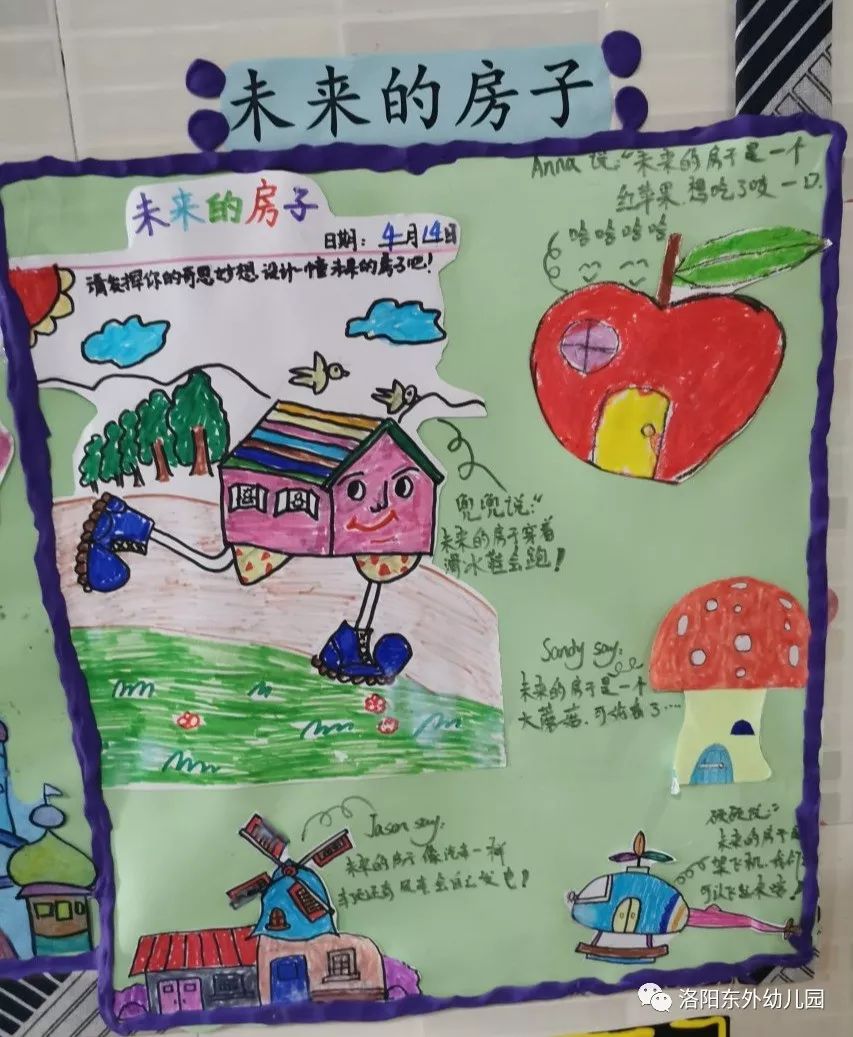 未来的房子
未来的房子
日期：4月14日
请发挥你的奇思妙想设计一幢未来的房子吧！
Anna 说："未来的房子是一个
红苹果,想吃了吱一口.
哈哈哈哈
兜兜说："
未来的房子穿着
滑冰鞋会跑！
Sandy say:
未来的房子是一个
大蘑菇,可
Jason say:
未来的房子像汽车一样
风车会自己发电！
硬硬说："
未来的房子
架飞机,我们
可以飞起来喽！
洛阳东外幼儿园